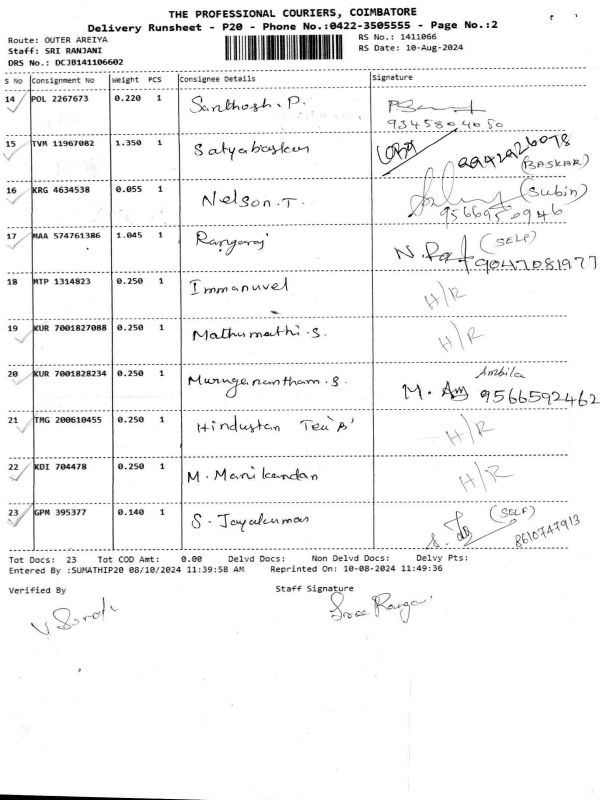 THE PROFESSIONAL COURIERS, COIMBATORE
Delivery Runsheet - P20 - Phone No.:0422-3505555 - Page No.:2
Route: OUTER AREIYA RS No.: 1411066
Staff: SRI RANJANI RS Date: 10-Aug-2024
DRS No.: DCJB141106602
S No Consignment No Weight PCS Consignee Details Signature
14 POL 2267673 0.220 1 Santhosh.P.
9345804050
15 TVM 11967082 1.350 1 Satyabaskar
(BASKAR)
16 KRG 4634538 0.055 1 Nelson.T. (Subin)
9566950946
17 MAA 574761386 1.045 1 Rangaraj N. (SELF)
9047081977
18 MTP 1314823 0.250 1 Immanuvel H/R
19 KUR 7001827088 0.250 1 Mathumathi.S. H/R
20 KUR 7001828234 0.250 1 Muruganantham.S. Ambika
M. 9566592462
21 TMG 200610455 0.250 1 Hindustan H/R
22 KDI 704478 0.250 1 M. Manikandan H/R
23 GPM 395377 0.140 1 S. Jayakumar (SELF)
8610747913
Tot Docs: 23 Tot COD Amt: 0.00 Delvd Docs: Non Delvd Docs: Delvy Pts:
Entered By :SUMATHIP20 08/10/2024 11:39:58 AM Reprinted On: 10-08-2024 11:49:36
Verified By Staff Signature